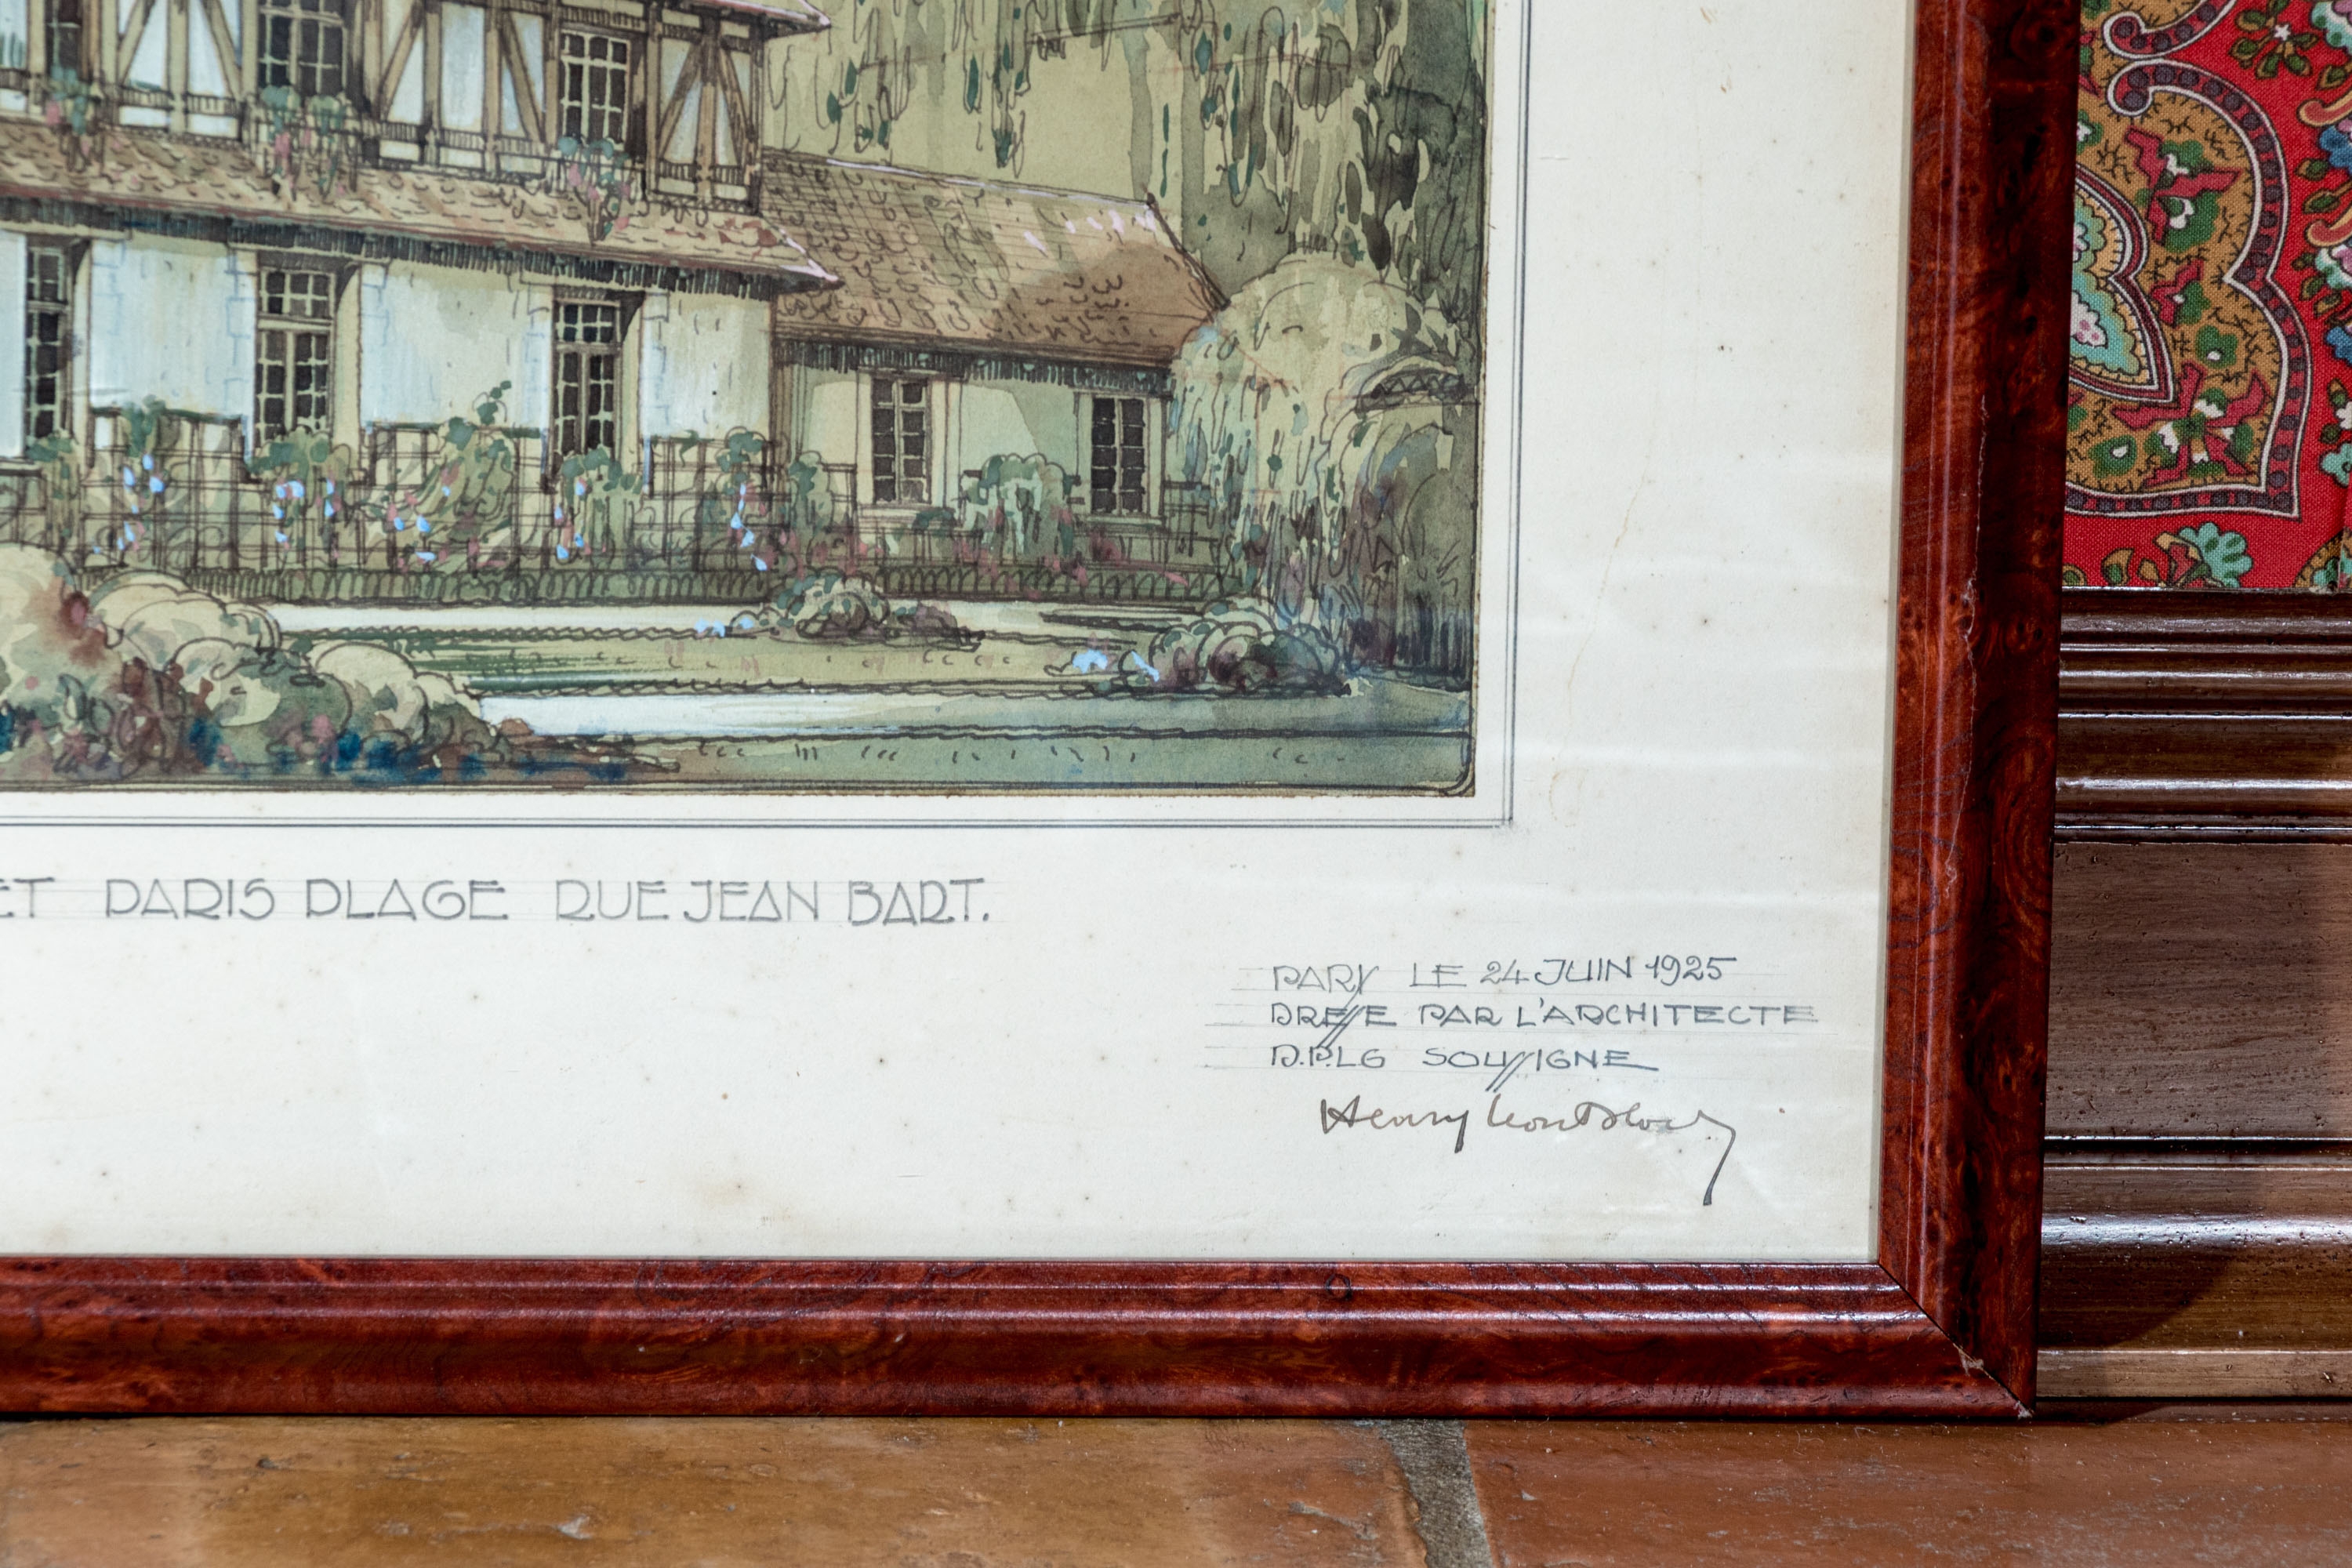 ET PARIS PLAGE RUE JEAN BART.
PARIS LE 24 JUIN 1925
DRESSE PAR L'ARCHITECTE
D.P.L.G SOUSSIGNE
Henry Leon Bloch